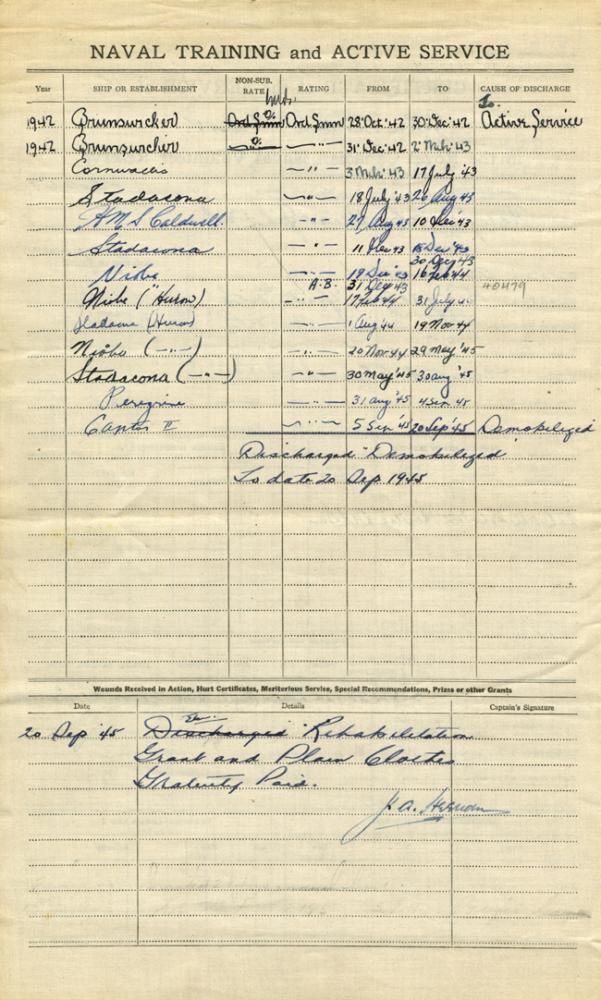 NAVAL TRAINING and ACTIVE SERVICE
Year SHIP OR ESTABLISHMENT NON-SUB. RATE RATING FROM TO CAUSE OF DISCHARGE
To
1942 Brunswicker Ord Smn Ord Smn 28 Oct '42 30 Dec '42 Active Service
1942 Brunswicker —"— 31 Dec '42 2 Mch '43
Cornwallis —"— 3 Mch '43 17 July '43
Stadacona —"— 18 July '43 26 Aug 43
HMS Caldwell. —"— 27 Aug 43 10 Dec 43
Stadacona —"— 11 Dec 43 18 Dec '43
30 Dec 43
Niobe —"— 19 Dec 43 16 Feb 44
A.B. 31 Dec 43 40479
Niobe ("Huron) —"— 17 Feb 44 31 July 44
Stadacona (Huron) 1 Aug 44 19 Nov 44
Niobe (—"—) —"— 20 Nov 44 29 May '45
Stadacona (—"—) —"— 30 May '45 30 Aug '45
Peregrine —"— 31 Aug 45 4 Sep 45
—"— 5 Sep '45 20 Sep '45 Demobilized
Discharged "Demobilized
to date 20 Sep 1945
Wounds Received in Action, Hurt Certificates, Meritorious Service, Special Recommendations, Prizes or other Grants
Date Details Captain's Signature
20 Sep '45 Discharged Rehabilitation
Grant and Plain Clothes
Gratuity Paid.